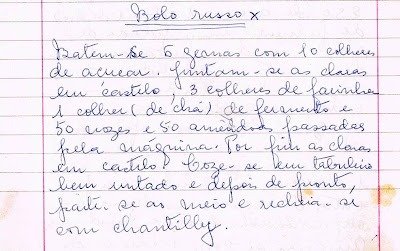 Bolo russo x
Batem-se 5 gemas com 10 colheres
de açucar. Juntam-se as claras
em castelo 3 colheres de farinha
1 colher (de chá) de fermento e
50 nozes e 50 amêndoas passadas
pela máquina. Por fim as claras
em castelo. Coze-se em tabuleiro
bem untado e depois de pronto,
parte-se ao meio e recheia-se
com chantilly.